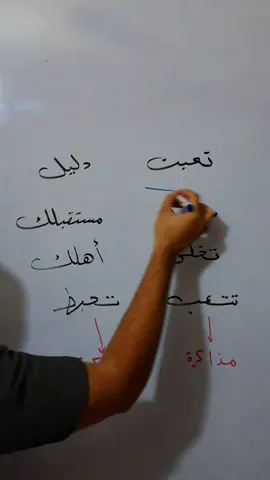 تعبت دليل
مستقبلك
أهلك
تتعب تحبط
مذاكرة